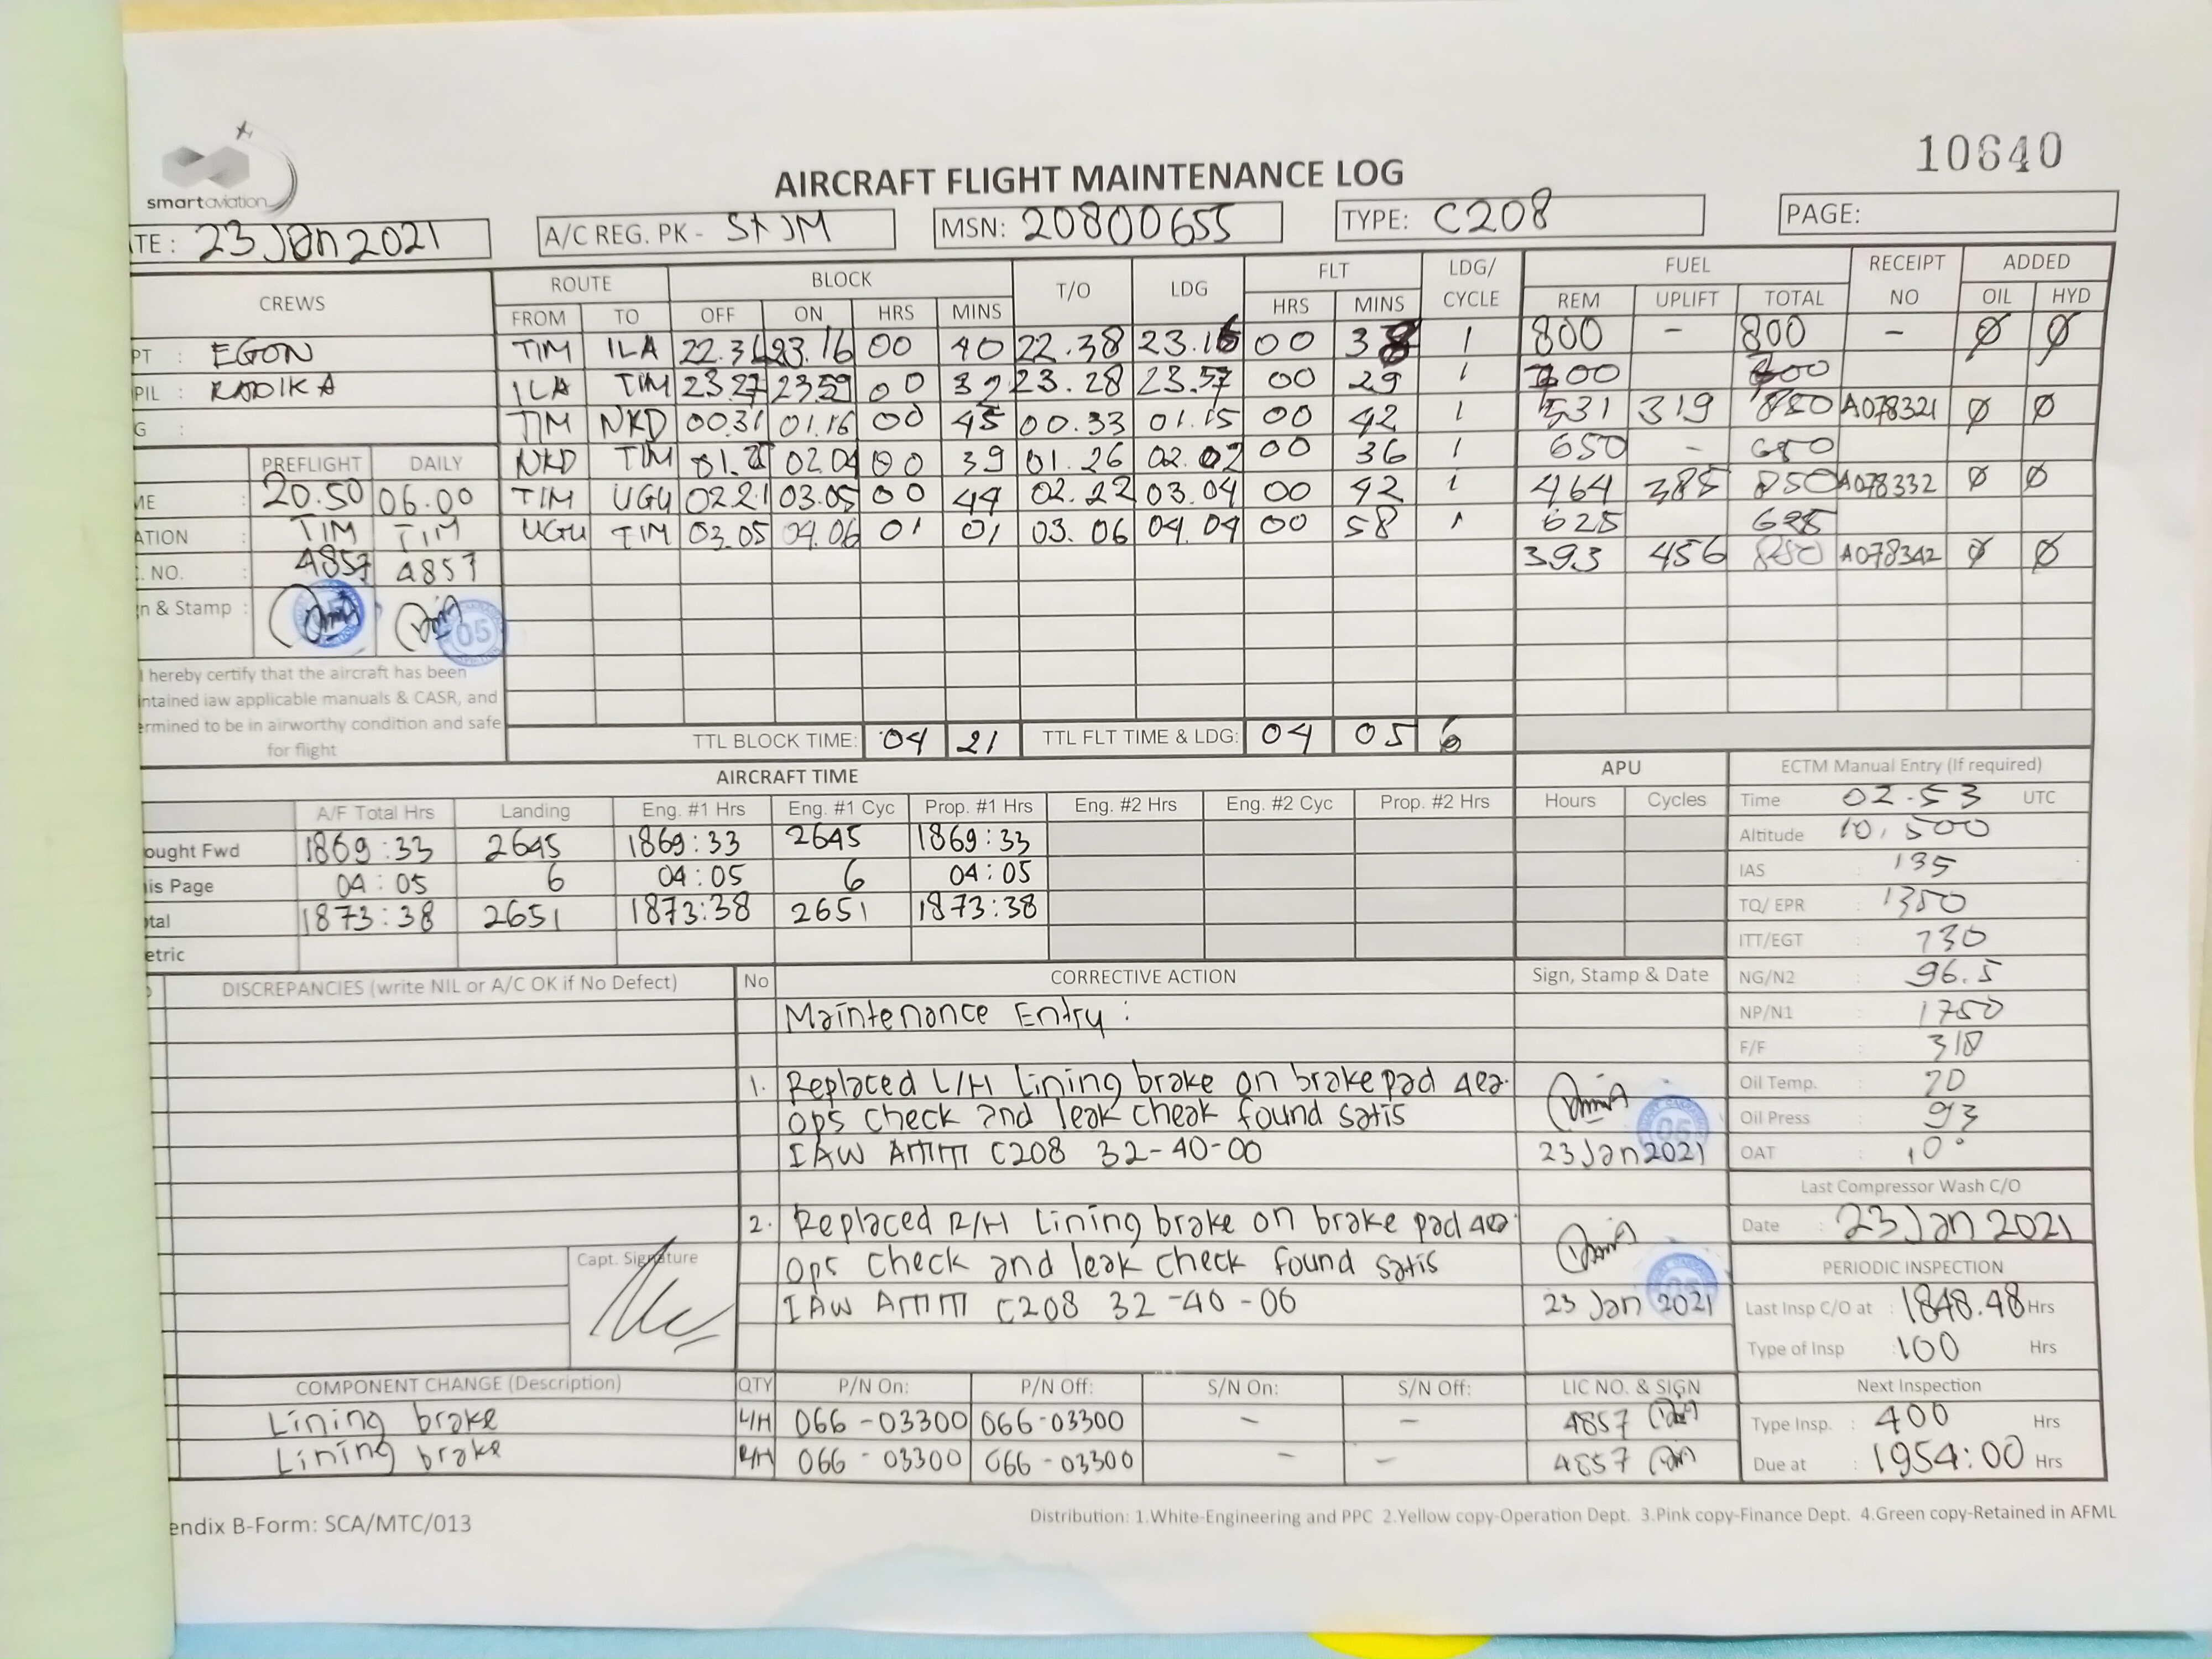 10640
smartaviation
AIRCRAFT FLIGHT MAINTENANCE LOG
TE : 23 Jan 2021 A/C REG. PK - MSN: 20800655 TYPE: C208 PAGE:
CREWS ROUTE BLOCK T/O LDG FLT LDG/ CYCLE FUEL RECEIPT NO ADDED
FROM TO OFF ON HRS MINS HRS MINS REM UPLIFT TOTAL OIL HYD
PT : EGON TIM ILA 23.16 00 40 22.38 23.16 00 38 1 800 - 800 - Ø Ø
PIL : RADIKA ILA TIM 23.27 23.59 00 32 23.28 23.57 00 29 1
G : TIM NKD 00.31 01.16 00 45 00.33 01.15 00 42 1 531 319 850 A078321 Ø Ø
PREFLIGHT DAILY NKD TIM 02.04 00 39 01.26 02.02 00 36 1 650 - 650
ME : 20.50 06.00 TIM UGU 02.21 03.05 00 44 02.22 03.04 00 42 1 464 385 850 A078332 Ø Ø
ATION : TIM TIM UGU TIM 03.05 04.06 01 01 03.06 04.04 00 58 1 625 625
. NO. : 4857 4857 393 456 850 A078342 Ø Ø
n & Stamp : 05
I hereby certify that the aircraft has been
intained iaw applicable manuals & CASR, and
ermined to be in airworthy condition and safe
for flight
TTL BLOCK TIME: 04 21 TTL FLT TIME & LDG: 04 05 6
AIRCRAFT TIME APU ECTM Manual Entry (If required)
A/F Total Hrs Landing Eng. #1 Hrs Eng. #1 Cyc Prop. #1 Hrs Eng. #2 Hrs Eng. #2 Cyc Prop. #2 Hrs Hours Cycles Time 02.53 UTC
ought Fwd 1869:33 2645 1869:33 2645 1869:33 Altitude 10,500
is Page 04:05 6 04:05 6 04:05 IAS 135
otal 1873:38 2651 1873:38 2651 1873:38 TQ/ EPR : 1350
etric ITT/EGT : 730
DISCREPANCIES (write NIL or A/C OK if No Defect) No CORRECTIVE ACTION Sign, Stamp & Date NG/N2 : 96.5
Maintenance Entry : NP/N1 : 1750
F/F : 310
1. Replaced L/H Lining brake on brake pad Oil Temp. : 70
Ops check and leak cheak found satis Oil Press : 93
IAW AMM C208 32-40-00 23 Jan 2021 OAT : 10°
Last Compressor Wash C/O
2. Replaced R/H Lining brake on brake pad Date : 23 Jan 2021
Capt. Signature Ops check and leak check found satis PERIODIC INSPECTION
IAW AMM C208 32-40-00 23 Jan 2021 Last Insp C/O at : 1848.48 Hrs
Type of Insp : 100 Hrs
COMPONENT CHANGE (Description) QTY P/N On: P/N Off: S/N On: S/N Off: LIC NO. & SIGN Next Inspection
Lining brake L/H 066-03300 066-03300 - - 4857 Type Insp. : 400 Hrs
Lining brake R/H 066-03300 066-03300 - - 4857 Due at : 1954:00 Hrs
endix B-Form: SCA/MTC/013
Distribution: 1.White-Engineering and PPC 2.Yellow copy-Operation Dept. 3.Pink copy-Finance Dept. 4.Green copy-Retained in AFML